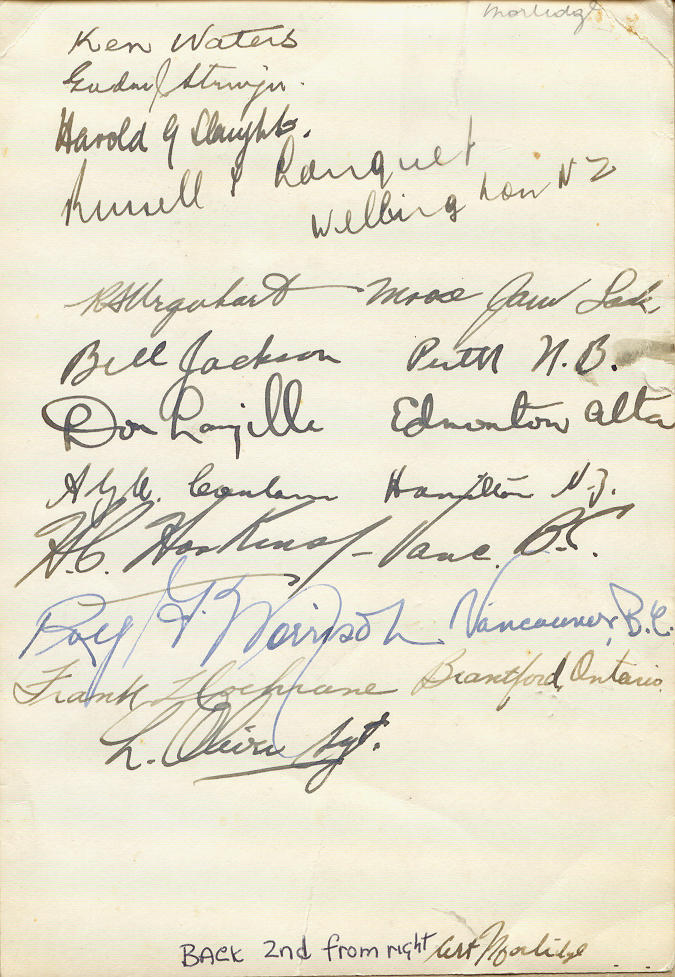 Morlidge
Ken Waters
Harold G Slaught.
Russell
Wellington NZ
R S Urquhart Moose Jaw Sask.
Bill Jackson Perth N.B.
Don Edmonton Alta
Hamilton N.Z.
H.C. Hoskins - Vanc. B.C.
Roy G. Morrison Vancouver, B.C.
Frank L Cochrane Brantford, Ontario.
L. Sgt.
BACK 2nd from right Art Morlidge